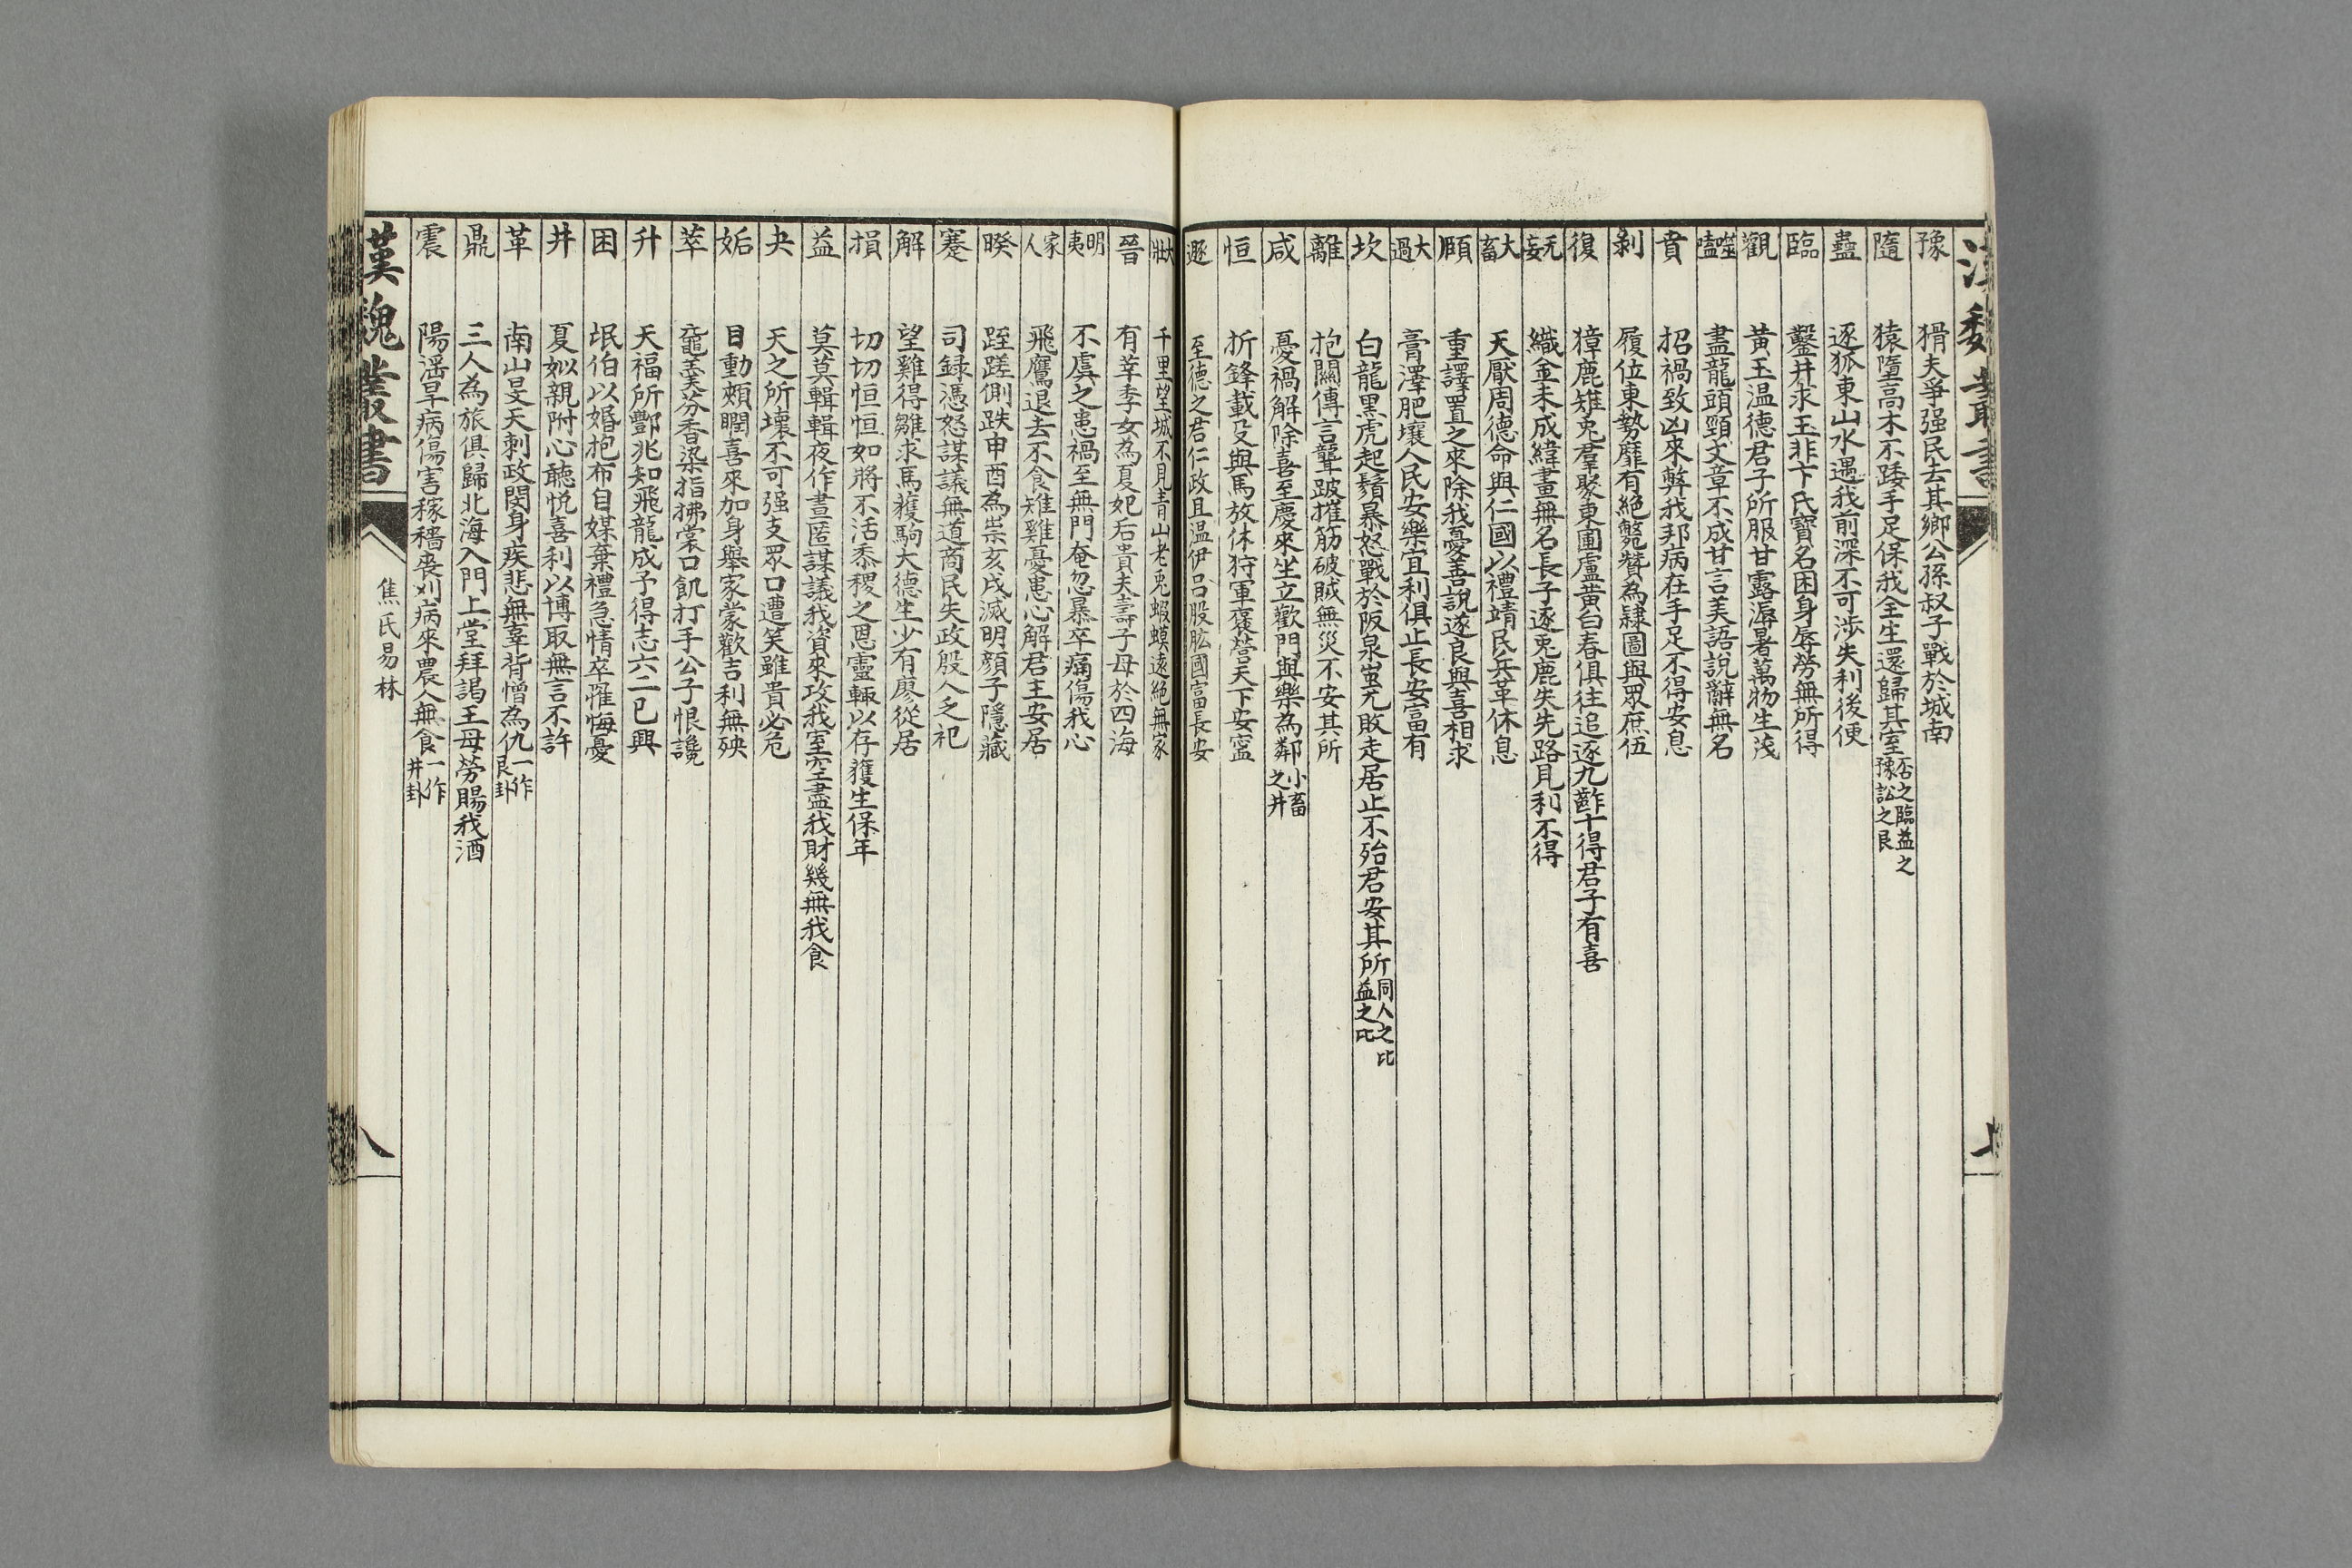 豫 猾夫爭强民去其鄉公孫叔子戰於城南
隨 猿墮高木不踒手足保我全生還歸其室否之臨益之豫訟之艮
蠱 逐狐東山水遇我前深不可涉失利後便
臨 鑿井求玉非卞氏寶名困身辱勞無所得
觀 黃玉温德君子所服甘露溽暑萬物生茂
噬嗑 畫龍頭頸文章不成甘言美語說辭無名
賁 招禍致凶來弊我邦病在手足不得安息
剝 履位東勢靡有絕斃贊為隸圖與眾庶伍
復 獐鹿雉兔羣聚東圃盧黃白脊俱往追逐九齚十得君子有喜
无妄 織金未成緯畫無名長子逐兔鹿失先路見利不得
大畜 天厭周德命與仁國以禮靖民兵革休息
頤 重譯置之來除我憂善說遂良與喜相求
大過 膏澤肥壤人民安樂宜利俱止長安富有
坎 白龍黑虎起鬚暴怒戰於阪泉蚩尤敗走居止不殆君安其所同人之比益之比
離 抱關傳言聾跛摧筋破賊無災不安其所
咸 憂禍解除喜至慶來坐立歡門與樂為鄰小畜之井
恒 折鋒載殳輿馬放休狩軍依營天下安寧
遯 至德之君仁政且温伊呂股肱國富長安
大壯 千里望城不見青山老兎蝦蟆遠絕無家
晉 有莘季女為夏妃后貴夫壽子母於四海
明夷 不虞之患禍至無門奄忽暴卒痛傷我心
家人 飛鷹退去不食雉雞憂患心解君王安居
暌 踁蹉側跌申酉為祟亥戌滅明顏子隱藏
蹇 司録憑怒謀議無道商民失政殷人乏祀
解 望雞得雛求馬獲駒大德生少有廖從居
損 切切恒恒如將不活黍稷之恩靈輒以存獲生保年
益 莫莫輯輯夜作晝匿謀議我資來攻我室空盡我財幾無我食
夬 天之所壞不可强支眾口遭笑雖貴必危
姤 目動頰瞤喜來加身舉家蒙歡吉利無殃
萃 黿羹芬香染指拂裳口飢打手公子恨讒
升 天福所酆兆知飛龍成子得志六二已興
困 氓伯以婚抱布自媒棄禮急情卒罹悔憂
井 夏姒親附心聽悅喜利以博取無言不許
革 南山旻天刺政閔身疾悲無辜背憎為仇一作艮卦
鼎 三人為旅俱歸北海入門上堂拜謁王母勞賜我酒
震 陽淫旱病傷害稼穡喪刈病來農人無食一作井卦
漢魏叢書 焦氏易林 八